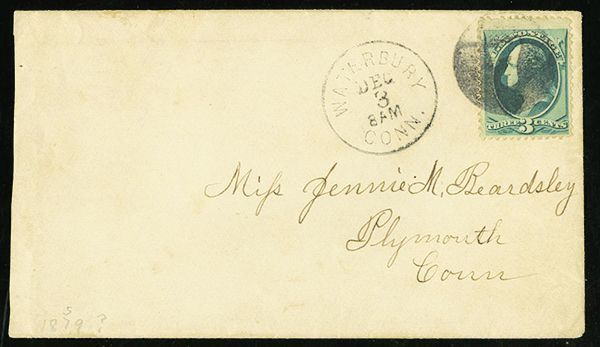 U.S. POSTAGE
THREE 3 CENTS
WATERBURY
DEC
3
8AM
CONN.
Miſs Jennie M. Beardsley
Plymouth
Conn
5
1879 ?